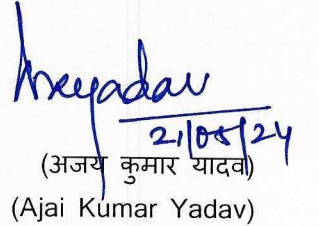 21/05/24
(अजय कुमार यादव)
(Ajai Kumar Yadav)